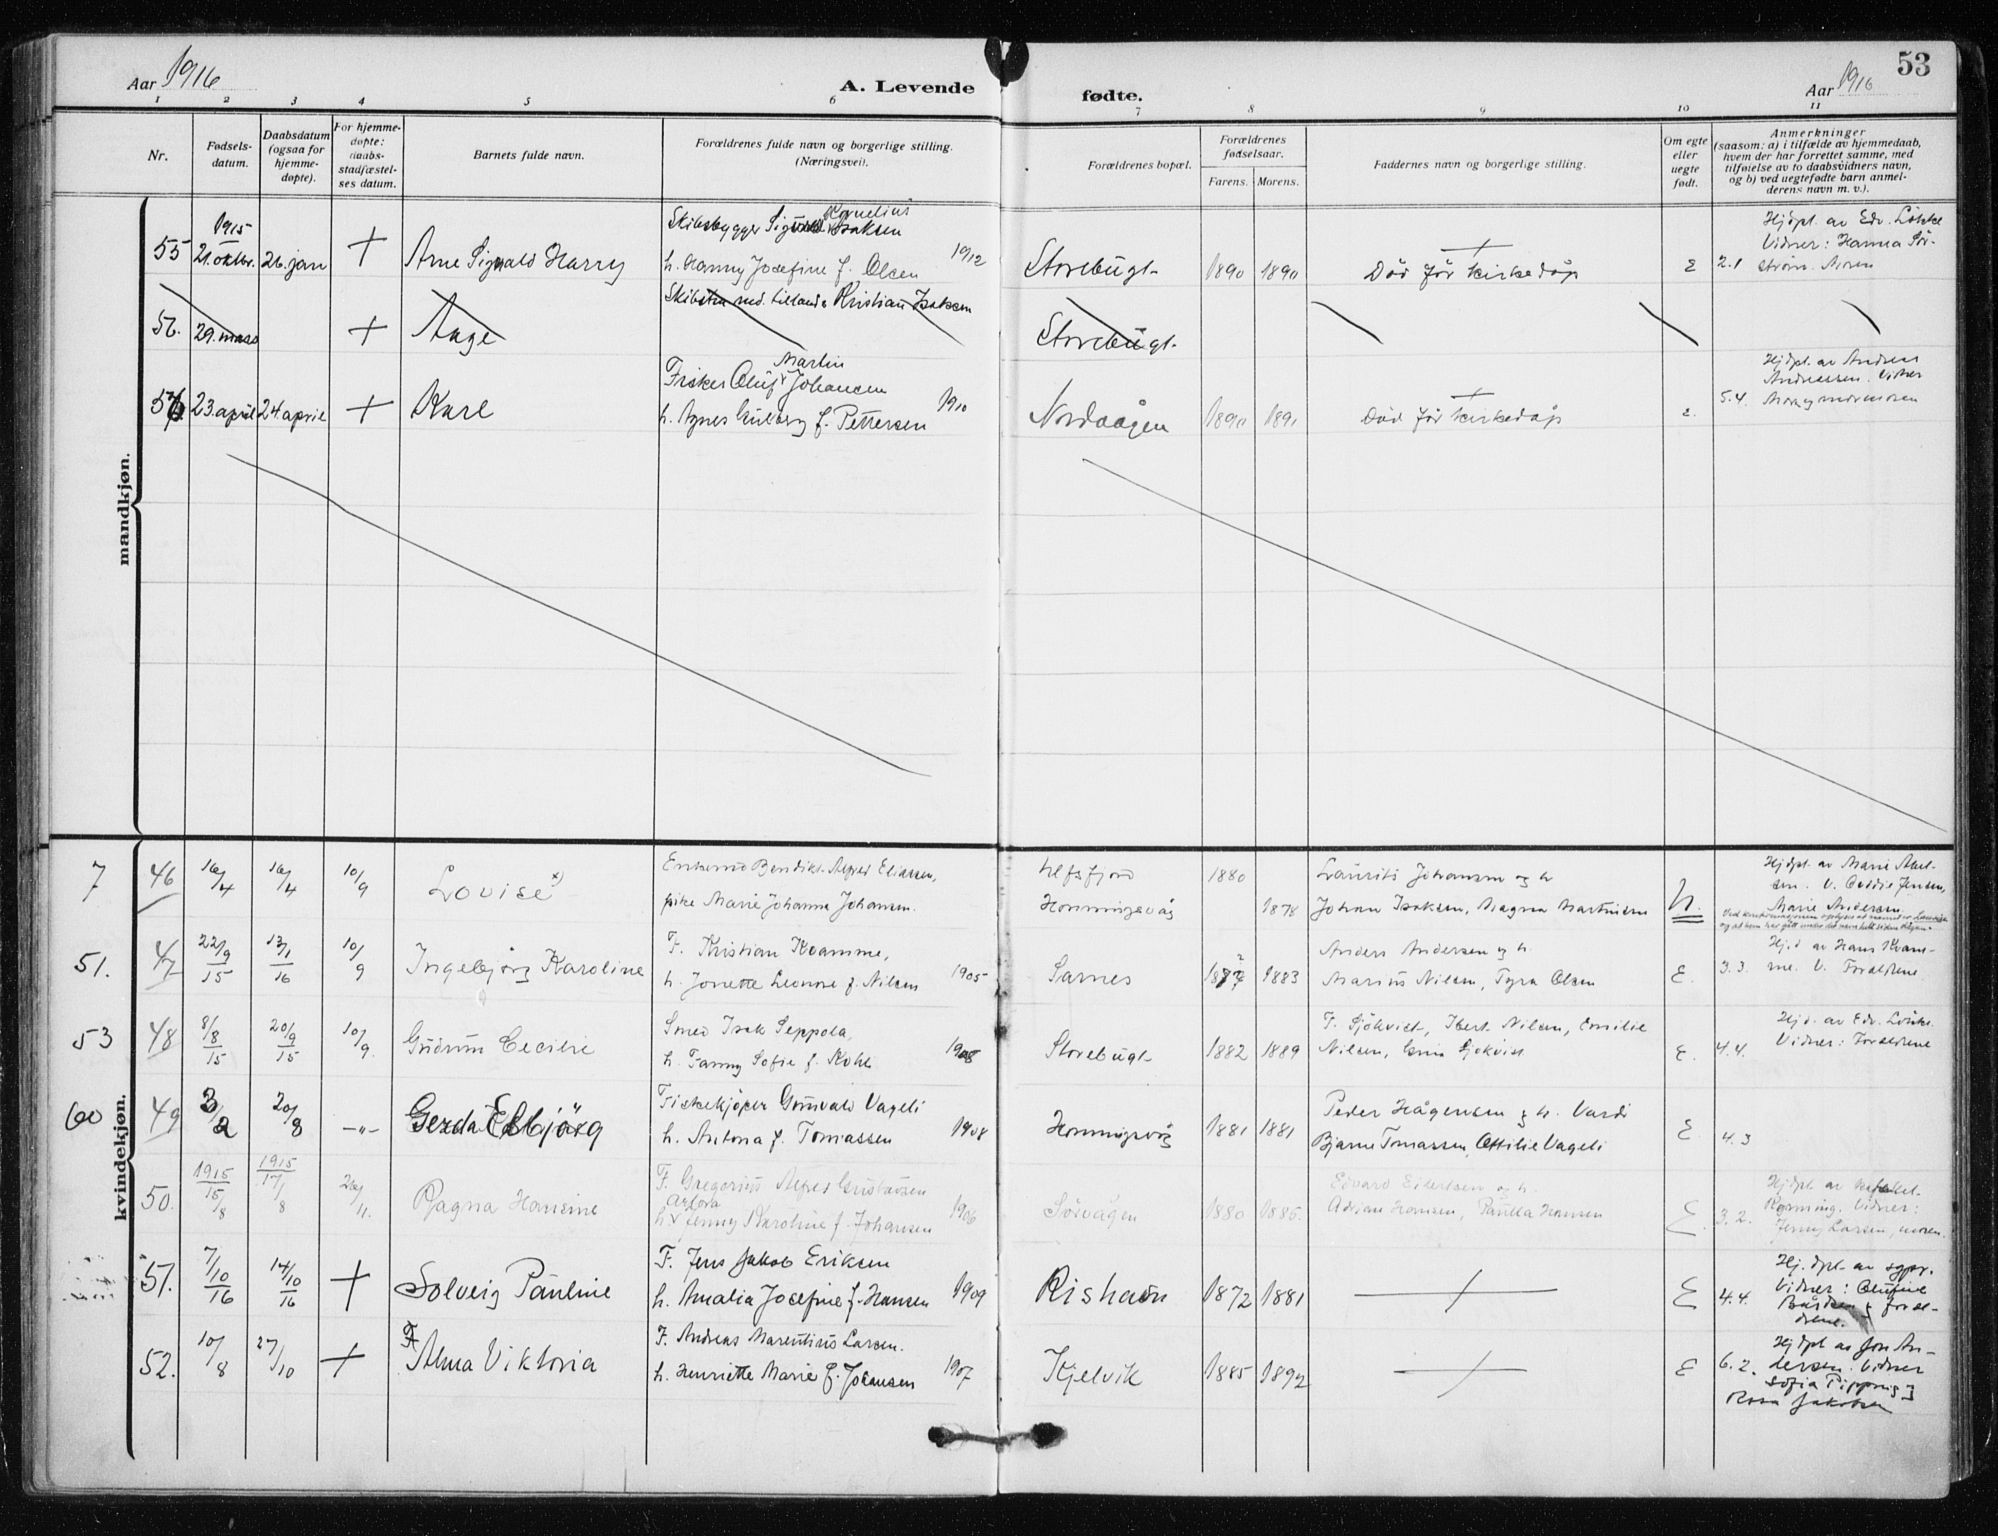 Aar 1916
A. Levende
fødte.
Aar 1916
53
1 2 3 4 5 6 7 8 9 10 11
Nr.
Fødsels-
datum.
Daabsdatum
(ogsaa for
hjemme-
døpte).
For hjemme-
døpte:
daabs-
stadfæstel-
ses datum.
Barnets fulde navn.
Forældrenes fulde navn og borgerlige stilling.
(Næringsvei).
Forældrenes bopæl.
Forældrenes
fødselsaar.
Farens. Morens.
Faddernes navn og borgerlige stilling.
Om egte
eller
uegte
født.
Anmerkninger
(saasom: a) i tilfælde av hjemmedaab,
hvem der har forrettet samme, med
tilføielse av to daabsvidners navn,
og b) ved uegtefødte barn anmel-
derens navn m. v.).
mandkjøn.
1915
Skibsbygger Sigvald Kornelius Isaksen
55 21. oktbr. 26. jan + Arne Sigvald Harry
h. Hanny Josefine f. Olsen 1912
Storebugt 1890 1890 Død før kirkedåp E 2.1
Hjdpt. av Edv. Lökke
Vidner: Hanna Sör-
ström. Moren
56. 29. mars + Aage
Kristian Isaksen
Storebugt
56 23. april 24. april + Karl
Fisker Oluf Martin Johansen
h. Agnes Gulborg f. Pettersen 1910
Nordvågen 1890 1891 Död för kirkedåp E. 5.4.
Hjdpt. av Andreas
Andreassen. Vidner
Mor og mormoren
kvindekjøn.
7 46 16/4 16/4 10/9 Lovise x)
Enkemd Bendikt Alfred Eliassen,
pike Marie Johanna Johansen.
Ulfsfjord 1880
Honningsvåg 1878
Laurits Johansen og h.
Johan Isaksen, Magna Martinsen
U.
Hjdpt. av Marie Abel-
sen. V. Oddie Jensen,
Marie Andersen
51. 47 22/9 15 13/1 16 10/9 Ingebjørg Karoline
F. Kristian Kvamme,
h. Jonette Leonore f. Nilsen 1905
Sarnes 1872 1883
Anders Andersen og h.
Marius Nilsen, Tyra Olsen
E. 3.3.
Hj.d av Hans Kvam-
me. V. Forældrene
53 48 8/8 15 20/9 15 10/9. Gudrun Cecilie
Smed Isak Seppola,
h. Fanny Sofie f. Kohl. 1908
Storebugt 1882 1889
F. Sjökvist, Ibert Nilsen, Emilie
Nilsen, Sjökvist
E. 4.4.
Hjd. av Edv. Lökke.
Vidner: Forældrene
60 49 3/2 20/8 -"- Gerda Elbjørg
Fiskekjöper Gunvald Vageli
h. Antona f. Tomassen 1908
Honningsvåg 1881 1881
Peder Hågensen og h. Vardö
Bjarne Tomassen, Ottilie Vageli
E. 4.3
50. 1915 15/8 1915 17/8 26/11. Ragna Hansine
F. Gregorius Alfred Gustavsen
h. Jenny Karoline f. Johansen 1906
Sörvågen 1880 1885.
Edvard Eilertsen og h.
Adrian Hansen, Paula Hansen
E. 3.2.
Ronning. Vidner:
Jenny Larsen, moren.
51. 7/10 16 14/10 16 + Solveig Pauline
F. Jens Jakob Eriksen
h. Amalia Josefine f. Hansen 1909
Rishavn 1872 1881 E 4.4.
Hj.dpt. av sgpr.
Vidner: Olufine
Bårdsen og foræl-
drene.
52. 10/8 27/10 + Alma Viktoria
F. Andreas Marentius Larsen.
h. Henriette Marie f. Johansen 1907
Kjelvik 1885 1892 E 6.2.
Hjdpt av Jon An-
dersen. Vidner
Sofia Pipping og
Rosa Jakobsen